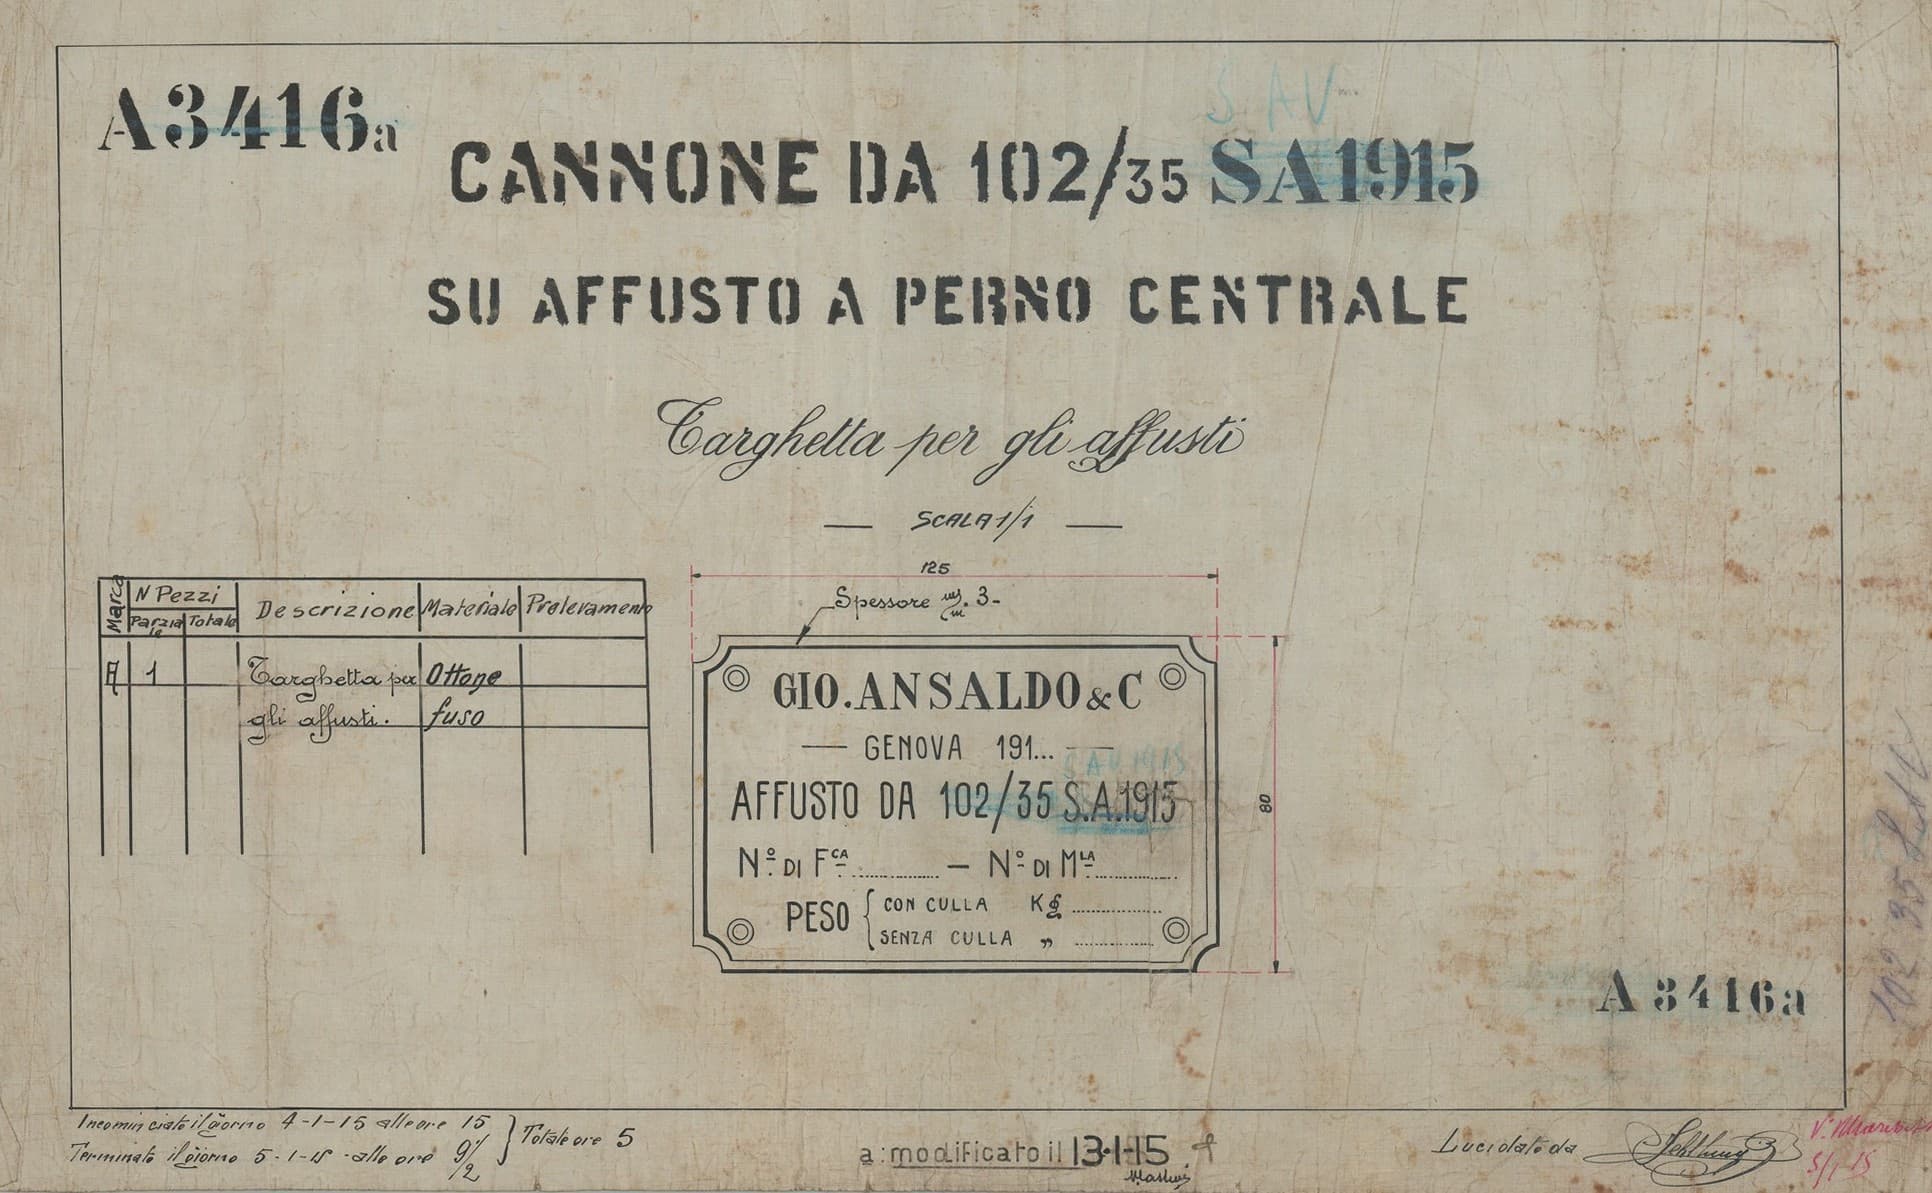 A3416a
S AV
CANNONE DA 102/35 SA1915
SU AFFUSTO A PERNO CENTRALE
Targhetta per gli affusti
SCALA 1/1
Marca
N Pezzi
Parziale
Totale
Descrizione
Materiale
Prelevamento
A 1 Targhetta per Ottone
gli affusti. fuso
125
Spessore m/m. 3-
80
GIO. ANSALDO & C
GENOVA 191...
S AV 1915
AFFUSTO DA 102/35 S.A.1915
Nº DI FCA .......... — Nº DI MLA ..........
PESO { CON CULLA Kg ..........
SENZA CULLA „ ..........
A 3416a
102 35
Incominciato il giorno 4-1-15 alle ore 15
Terminato il giorno 5-1-15 - alle ore 9 1/2
Totale ore 5
a: modificato il 13-1-15
Lucidato da
5/1 15